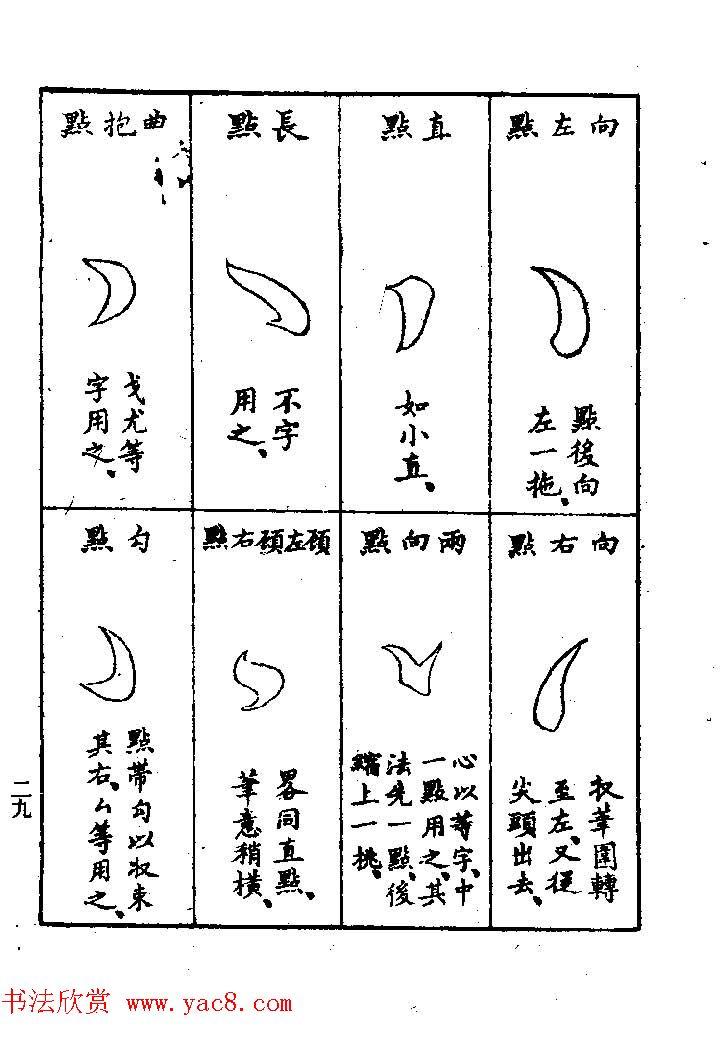 向左點
點後向
左一拖、
直點
如小直、
長點
不字
用之、
曲抱點
戈尤等
字用之、
向右點
收筆圍轉
至左、又從
尖頭出去、
兩向點
心以等字、中
一點用之、其
法先一點、後
縮上一挑、
顧左顧右點
畧同直點、
筆意稍橫、
勾點
點帶勾以收束
其右、厶等用之、
二九
书法欣赏 www.yac8.com